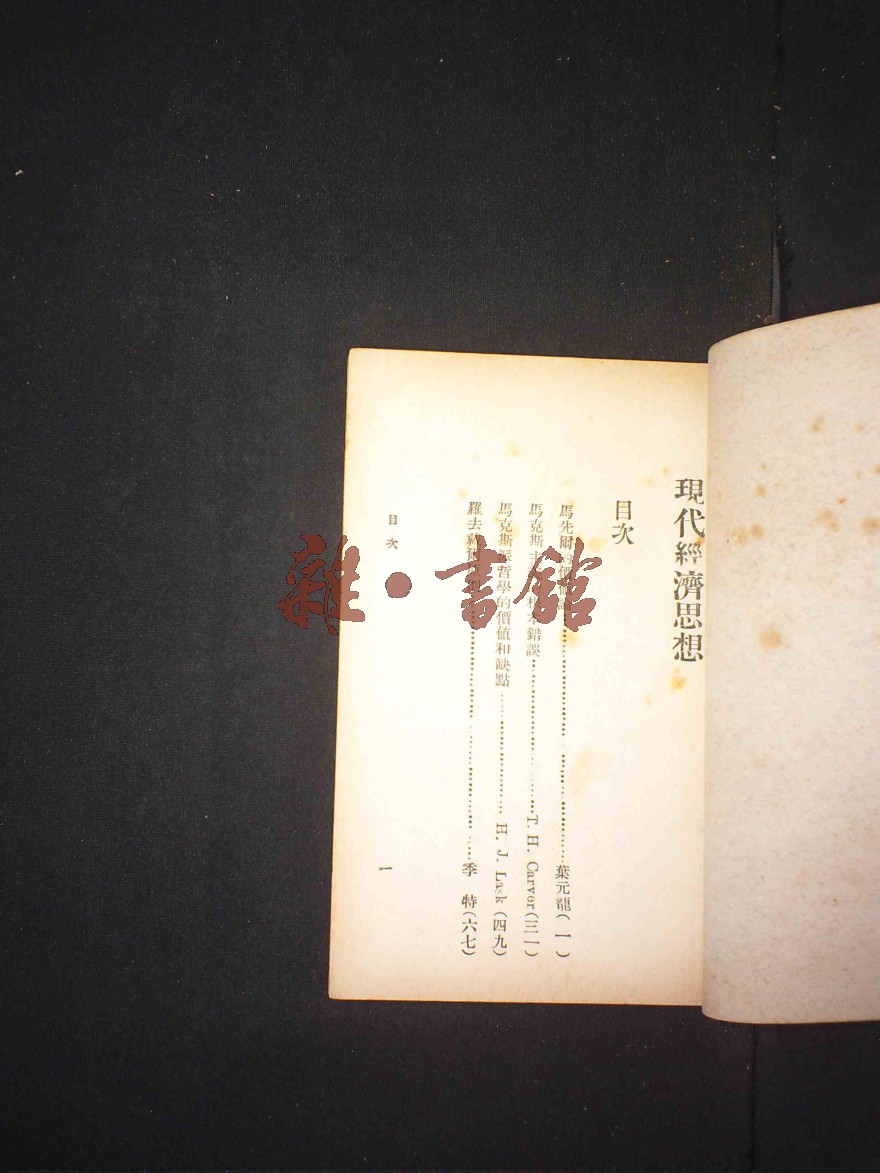 現代經濟思想
目次
馬先爾的價值論……葉元龍(一)
馬克斯主 根本錯誤……T. H. Carver(三一)
馬克斯派哲學的價值和缺點……H. J. Lask(四九)
羅去 ……季特(六七)
目次
一
雜·書館